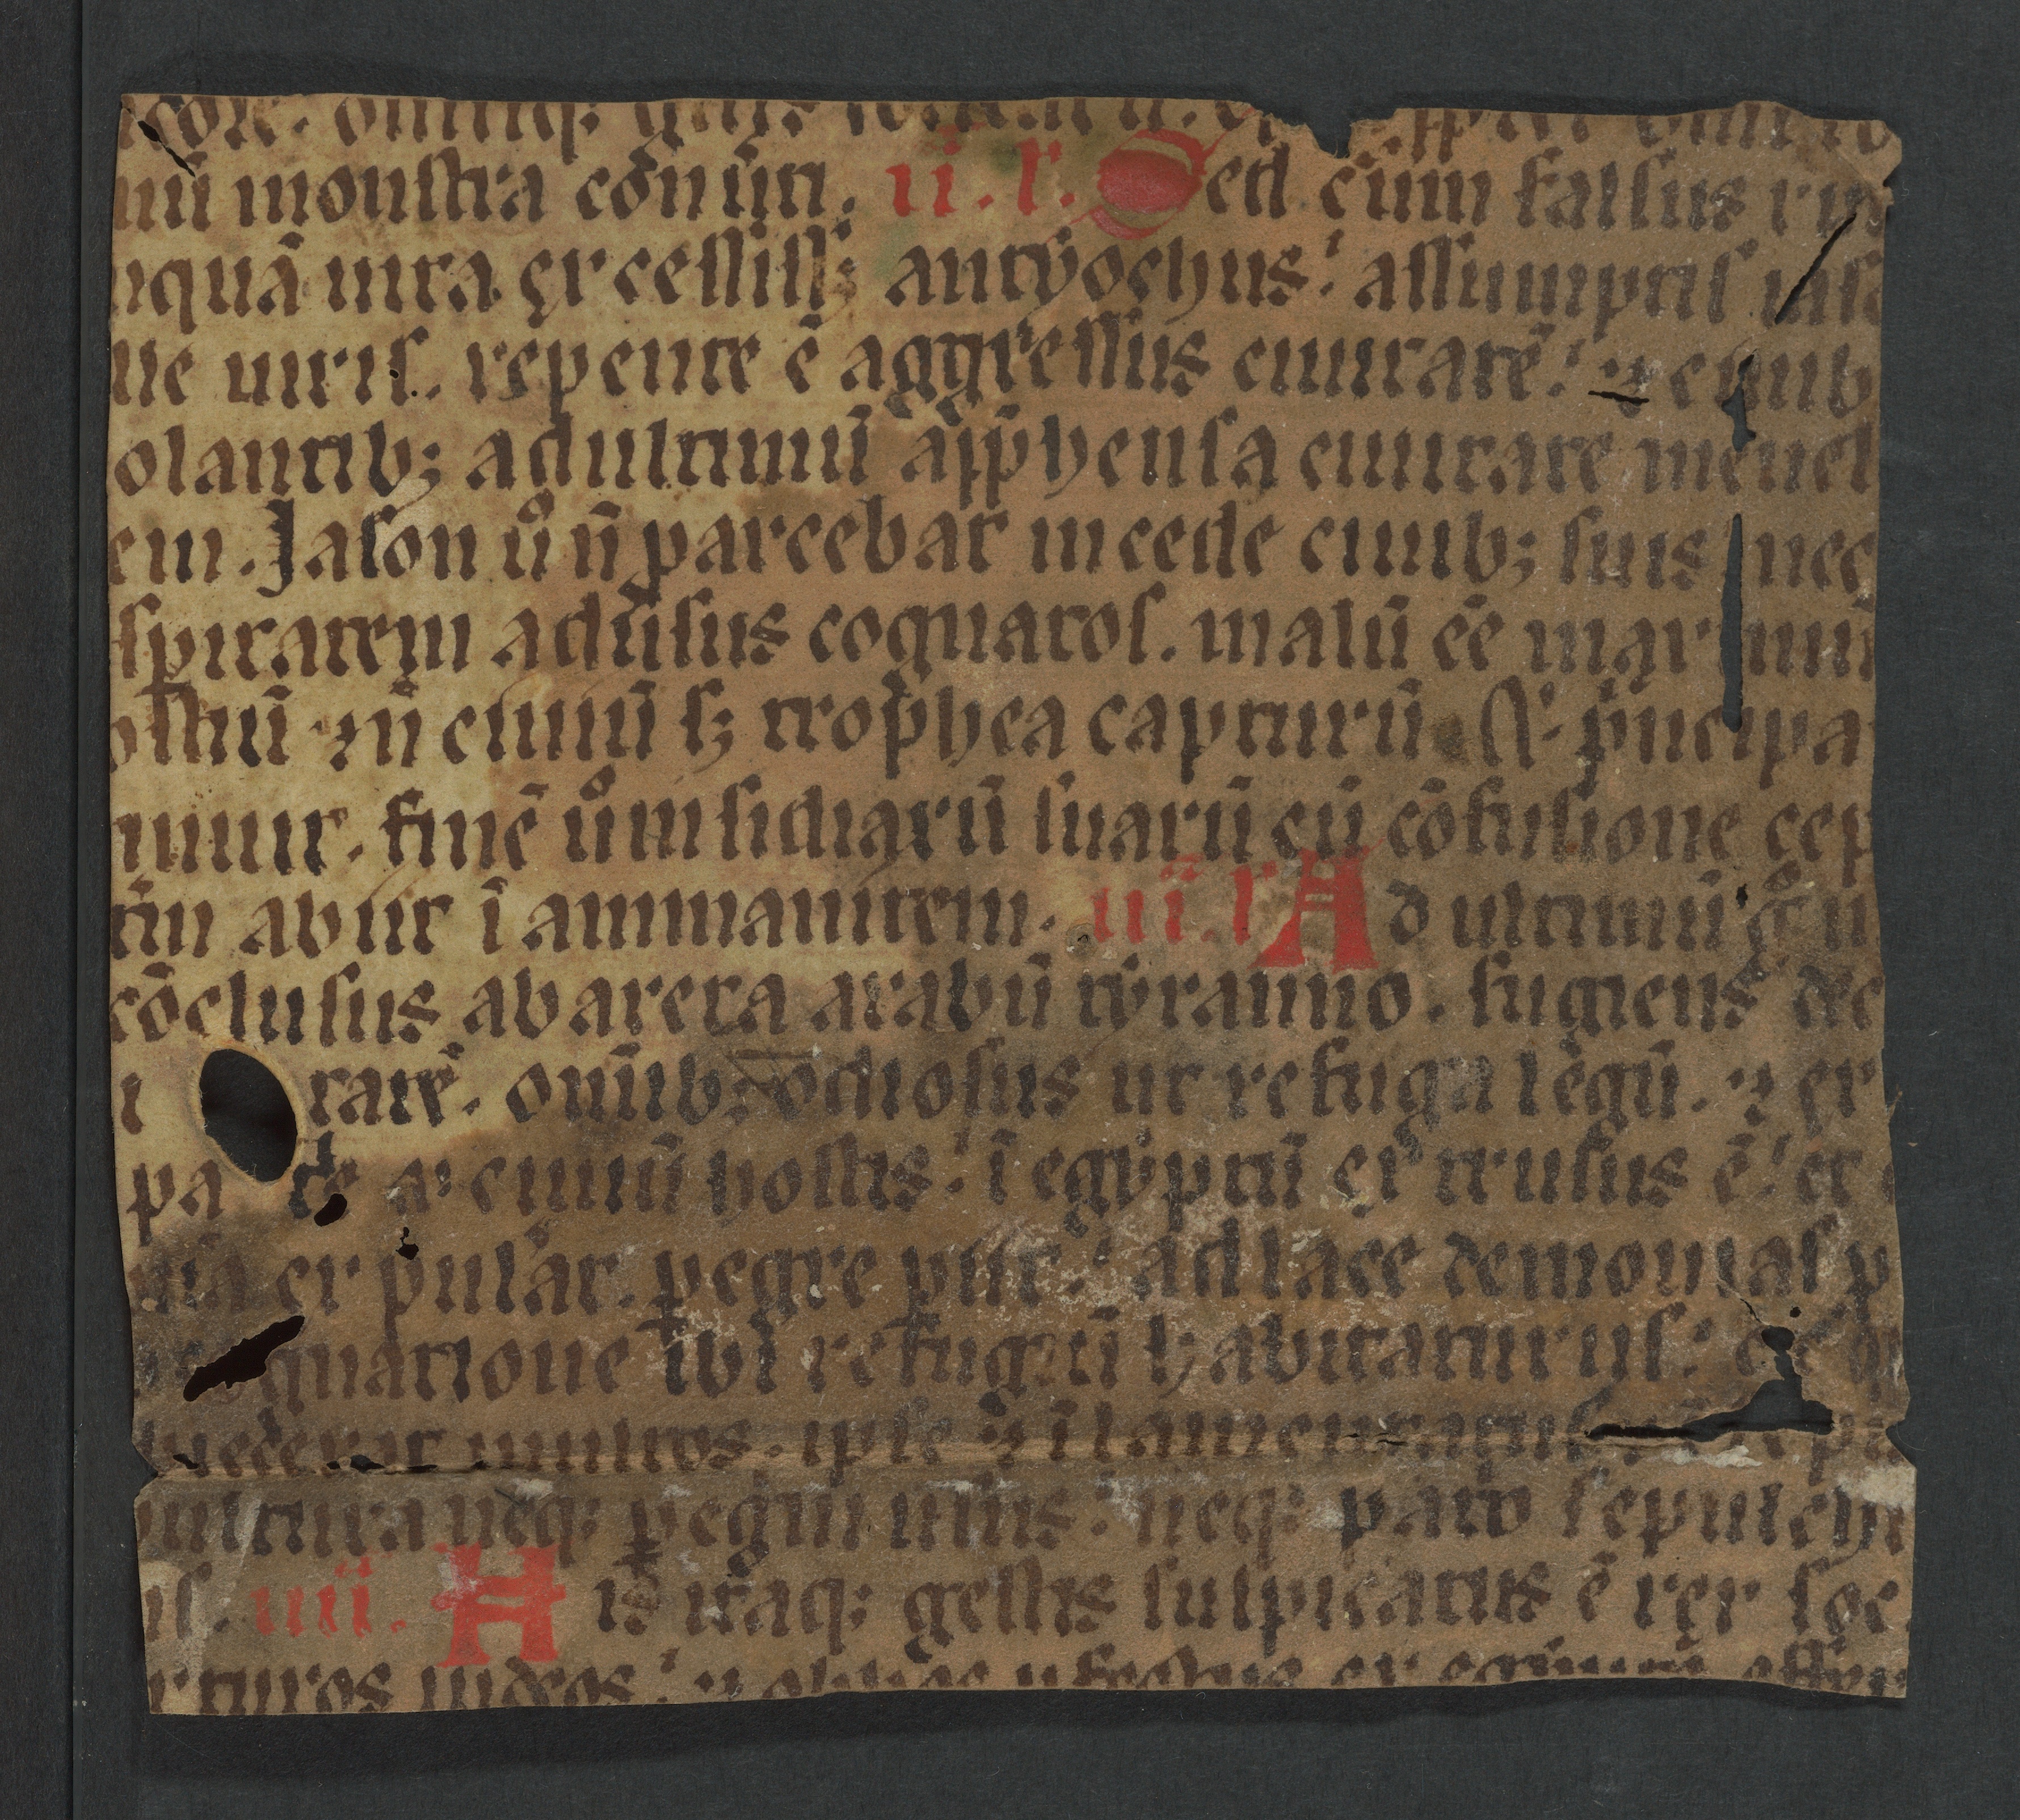 nū monstra cōnūti. ii. l. Sed cum falsus ru
nquā uita excessiss; antyochus. assumptis
ue uiris. repente ē aggressus ciuitatē. ⁊ ciuib
olantib; ad ultimū app̄hensa ciuitate menel
em. Jason ū n̄ parcebat in cede ciuib; suis nec
spitatem adūsus cognatos. malū ēē maximū
ostiū ⁊ n̄ ciuiū s; trophea capturū Et p̄ncipa
inuit. finē ū insidiarū suarū cū cōfusione cep
tīm abiit ī ammanitem. iii. l Ad ultimū
cōclusus ab areta arabū tyranno. fugiens dec
i tatē. om̄ib; odiosus ut refuga legū. ⁊ ex
pa de a ciuiū hostis. ī egyptū extrusus ē. et
ria expulat. pegre piit. ad lace demonias p
gnatione ibi refugiū habitaturus.
iecerat multos. ipse ⁊ īlamentatus
pultura neq; pegrina usus. neq; patio sepulch
is. iiii. His itaq; gestis suspicatus ē rex soc